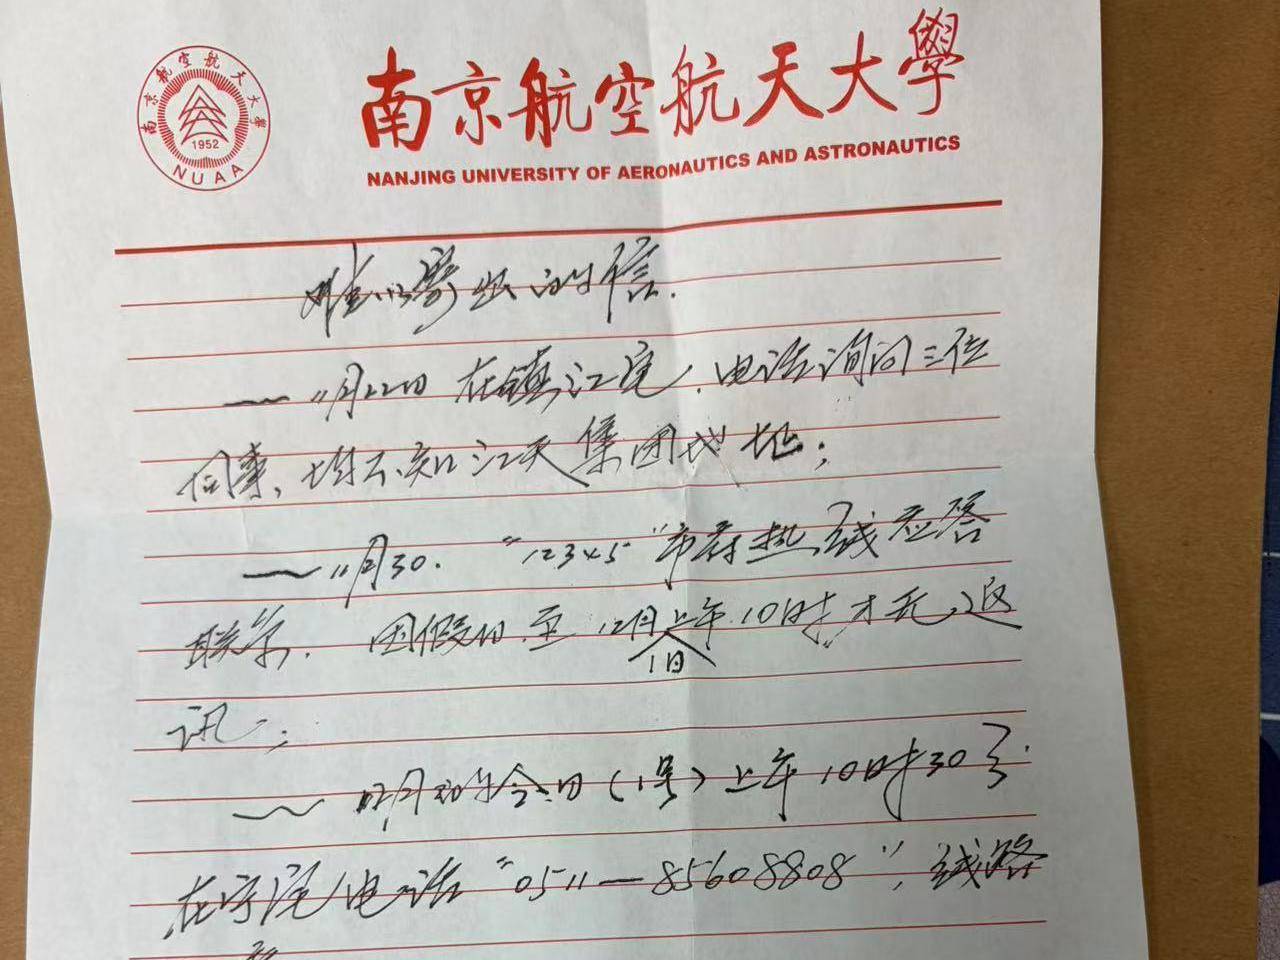 南京航空航天大学
1952
NUAA
南京航空航天大學
NANJING UNIVERSITY OF AERONAUTICS AND ASTRONAUTICS
难以寄出的信.
一 11月22日 在镇江宅, 电话询问三位
同事、均不知江天集团地址;
一 11月30. "12345"市府热线应答
联系. 因假日.至12月上午10时才无返
1日
讯;
一 今日(1号)上午10时30分.
在宁宅电话"0511—85608808", 线路